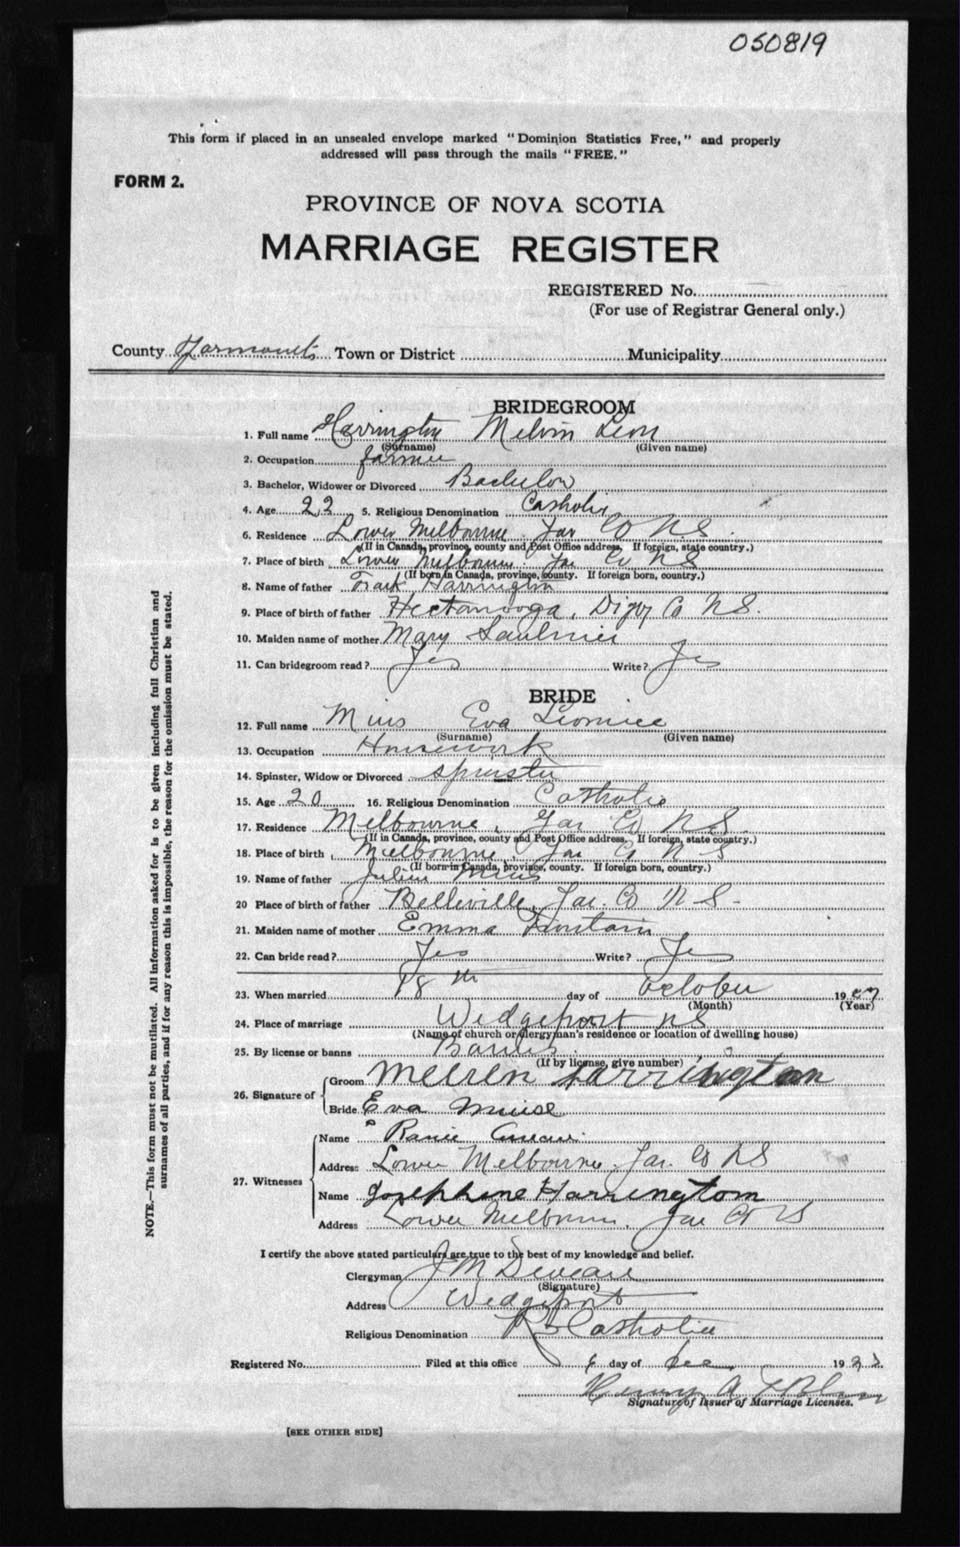 050819
This form if placed in an unsealed envelope marked "Dominion Statistics Free," and properly
addressed will pass through the mails "FREE."
FORM 2.
PROVINCE OF NOVA SCOTIA
MARRIAGE REGISTER
REGISTERED No.
(For use of Registrar General only.)
County Yarmouth Town or District Municipality
BRIDEGROOM
1. Full name Harrington Melvin Leon
(Surname) (Given name)
2. Occupation farmer
3. Bachelor, Widower or Divorced Bachelor
4. Age 22 5. Religious Denomination Catholic
6. Residence Lower Melbourne Yar Co NS.
(If in Canada, province, county and Post Office address. If foreign, state country.)
7. Place of birth Lower Melbourne Yar Co NS
(If born in Canada, province, county. If foreign born, country.)
8. Name of father Frank Harrington
9. Place of birth of father Hectanooga, Digby Co NS.
10. Maiden name of mother Mary Saulnier
11. Can bridegroom read? Yes Write? Yes
BRIDE
12. Full name Mius Eva Leonice
(Surname) (Given name)
13. Occupation Housework
14. Spinster, Widow or Divorced spinster
15. Age 20 16. Religious Denomination Catholic
17. Residence Melbourne, Yar Co NS.
(If in Canada, province, county and Post Office address. If foreign, state country.)
18. Place of birth Melbourne, Yar Co NS
(If born in Canada, province, county. If foreign born, country.)
19. Name of father Julien Mius
20 Place of birth of father Belleville, Yar. Co NS-
21. Maiden name of mother Emma Fontain
22. Can bride read? Yes Write? Yes
23. When married 18th day of October 19
(Month) (Year)
24. Place of marriage Wedgeport NS
(Name of church or clergyman's residence or location of dwelling house)
25. By license or banns Banns
(If by license, give number)
26. Signature of Groom Harrington
Bride Eva Muise
27. Witnesses
Name
Address Lower Melbourne, Yar. Co NS
Name Josephine Harrington
Address Lower Melbourne, Yar Co NS
I certify the above stated particulars are true to the best of my knowledge and belief.
Clergyman J M
(Signature)
Address Wedgeport
Religious Denomination R Catholic
Registered No. Filed at this office day of Dec 192
Henry A
Signature of Issuer of Marriage Licenses.
[SEE OTHER SIDE]
NOTE.—This form must not be mutilated. All information asked for is to be given including full Christian and
surnames of all parties, and if for any reason this is impossible, the reason for the omission must be stated.